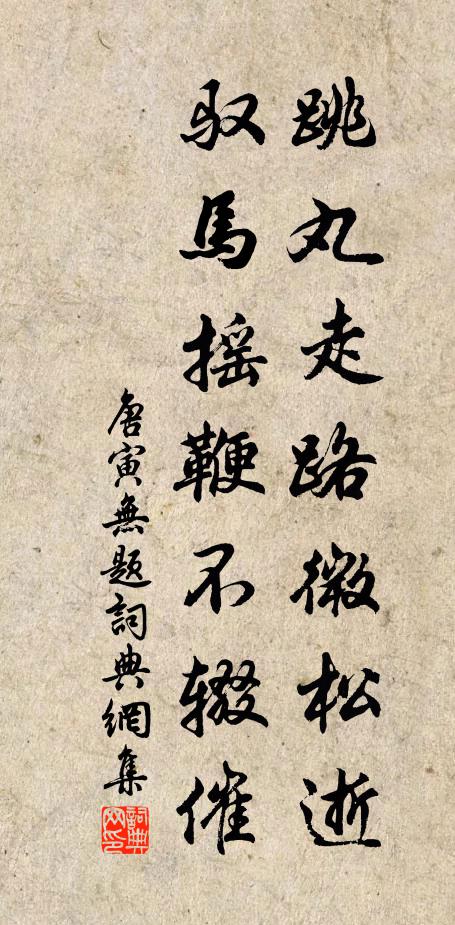 跳丸走路微松逝
驭馬摇鞭不辍催
唐寅無题詞典網集
詞典网印